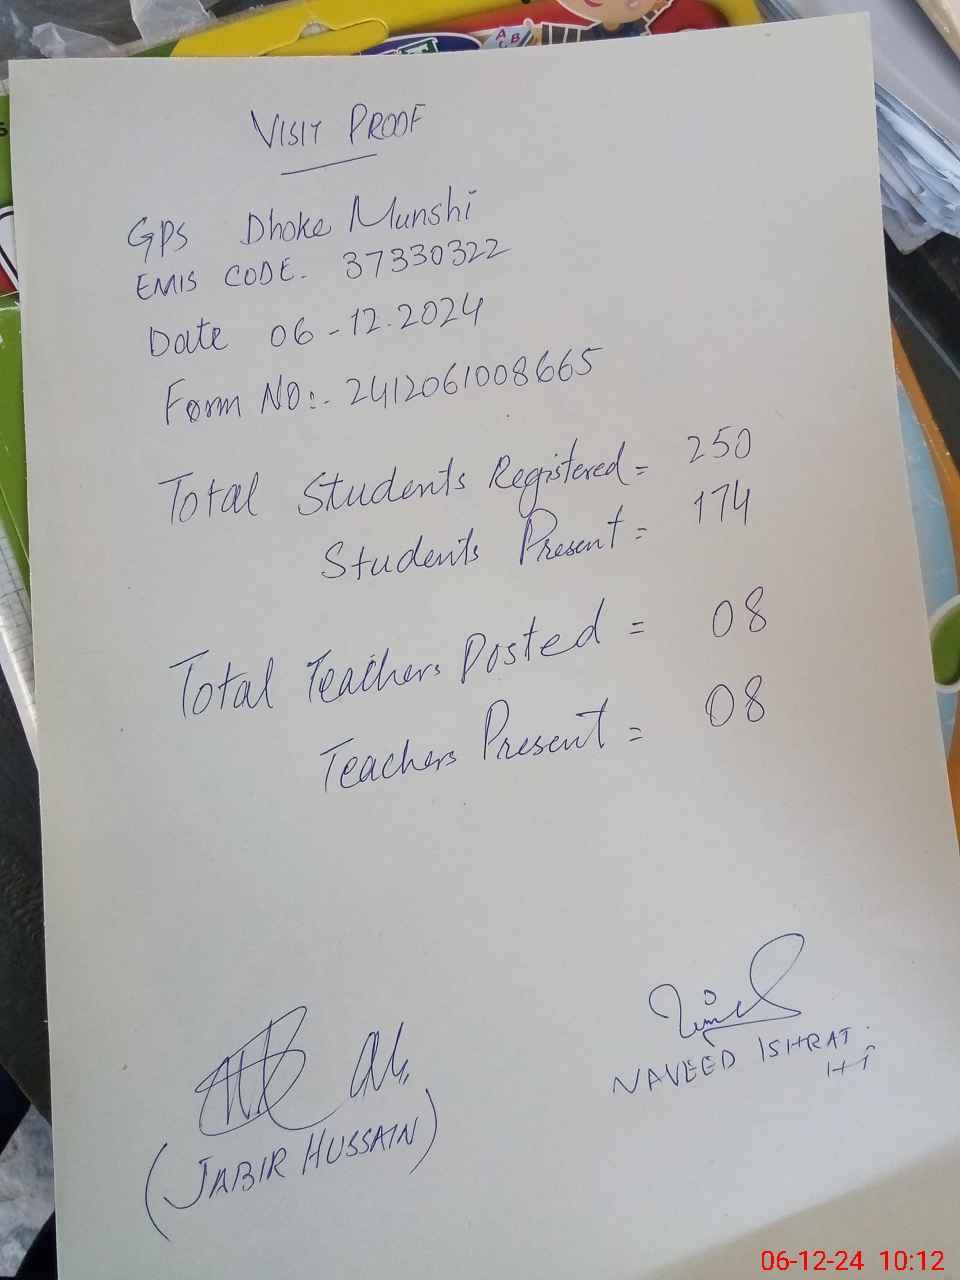 VISIT PROOF
GPS Dhoke Munshi
EMIS CODE. 37330322
Date 06-12.2024
Form NO:- 2412061008665
Total Students Registered = 250
Students Present = 174
Total Teachers Posted = 08
Teachers Present = 08
NAVEED ISHRAT
(JABIR HUSSAIN)
06-12-24 10:12